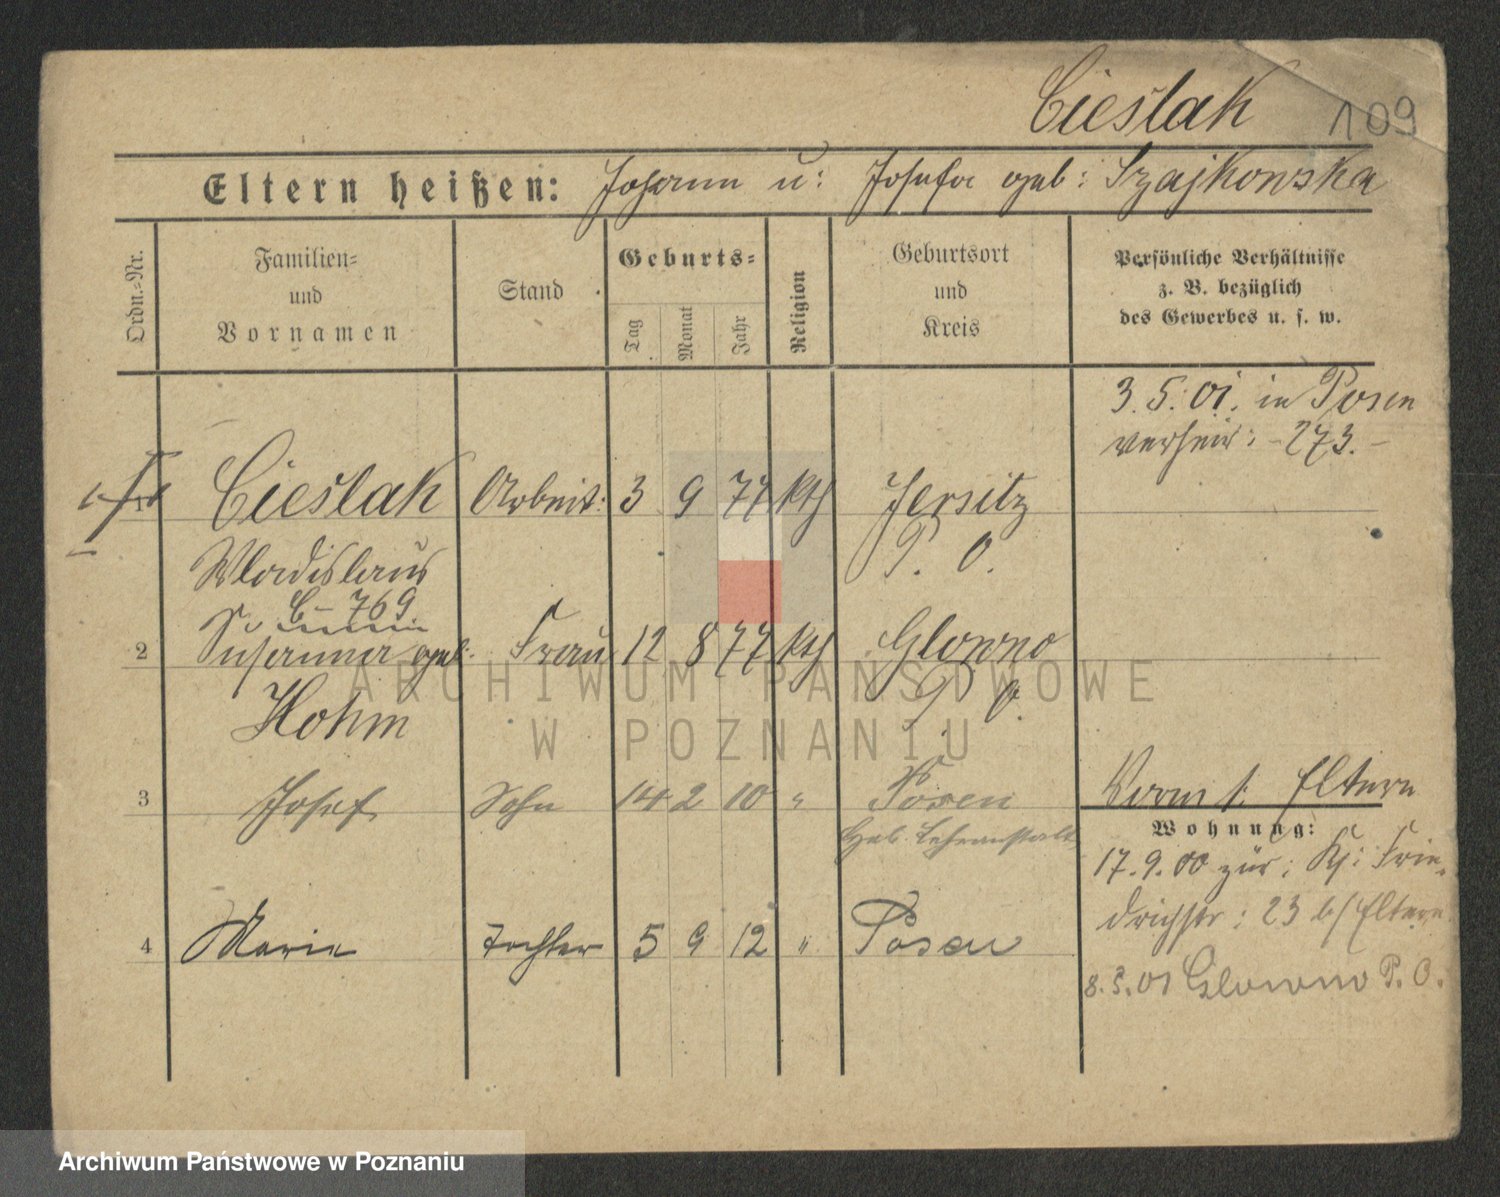 Cieślak 109
Eltern heißen: Johann u: Josefa geb: Szajkowska
Ordn.-Nr.
Familien-
und
Vornamen
Stand
Geburts-
Tag
Monat
Jahr
Religion
Geburtsort
und
Kreis
Persönliche Verhältnisse
z. B. bezüglich
des Gewerbes u. s. w.
3.5.01. in Posen
verheir: -273.-
1 Cieślak Arbeit: 3 9 77 kth Jersitz
P. O.
Wladislaus
C - 769
2 Susanna geb: Frau 12 8 77 kth Glowno
P. O.
Hohm
3 Josef Sohn 14 2 10 " Posen
Heb. Lehranstalt
Vorm f. Eltern
Wohnung:
17.9.00 zür: Frie-
drichstr: 23 b/Eltern
4 Marie Tochter 5 9 12 " Posen
8.5.01 Glowno P. O.
ARCHIWUM PAŃSTWOWE
W POZNANIU
Archiwum Państwowe w Poznaniu